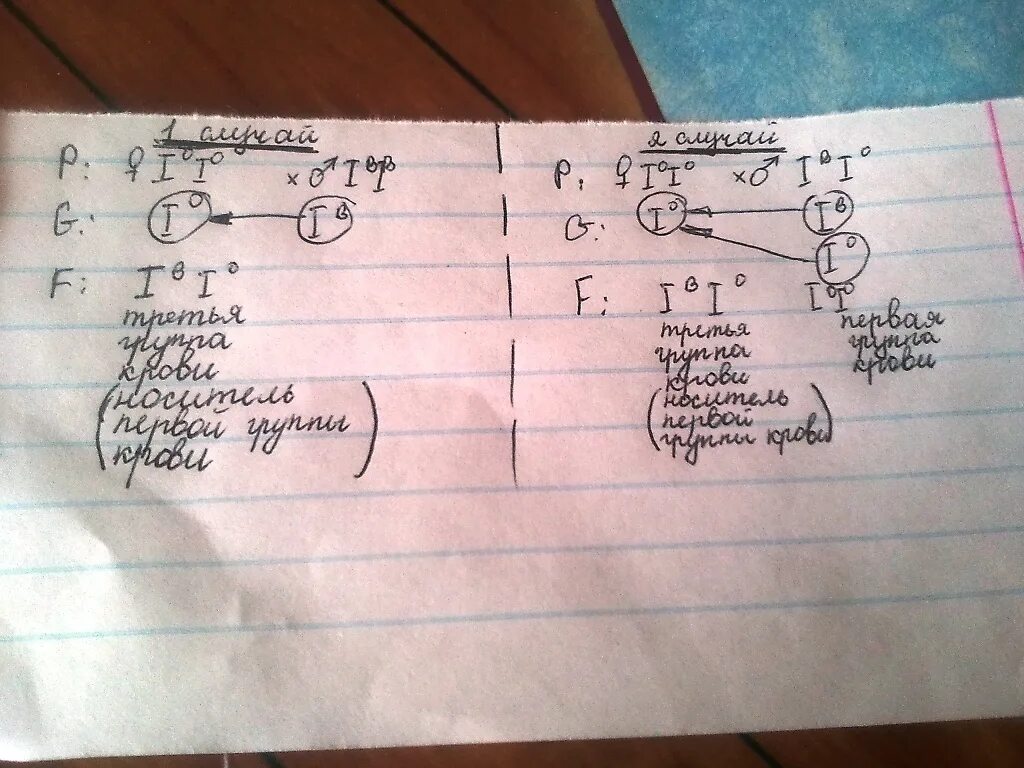 1 случай
P: ♀ I⁰I⁰ × ♂ IᴮIᴮ
G: I⁰ ← Iᴮ
F: Iᴮ I⁰
третья
группа
крови
(носитель
первой группы
крови)
2 случай
P: ♀ I⁰I⁰ × ♂ Iᴮ I⁰
G: I⁰ ← Iᴮ
I⁰
F: Iᴮ I⁰ I⁰I⁰
третья
группа
крови
(носитель
первой
группы крови)
первая
группа
крови